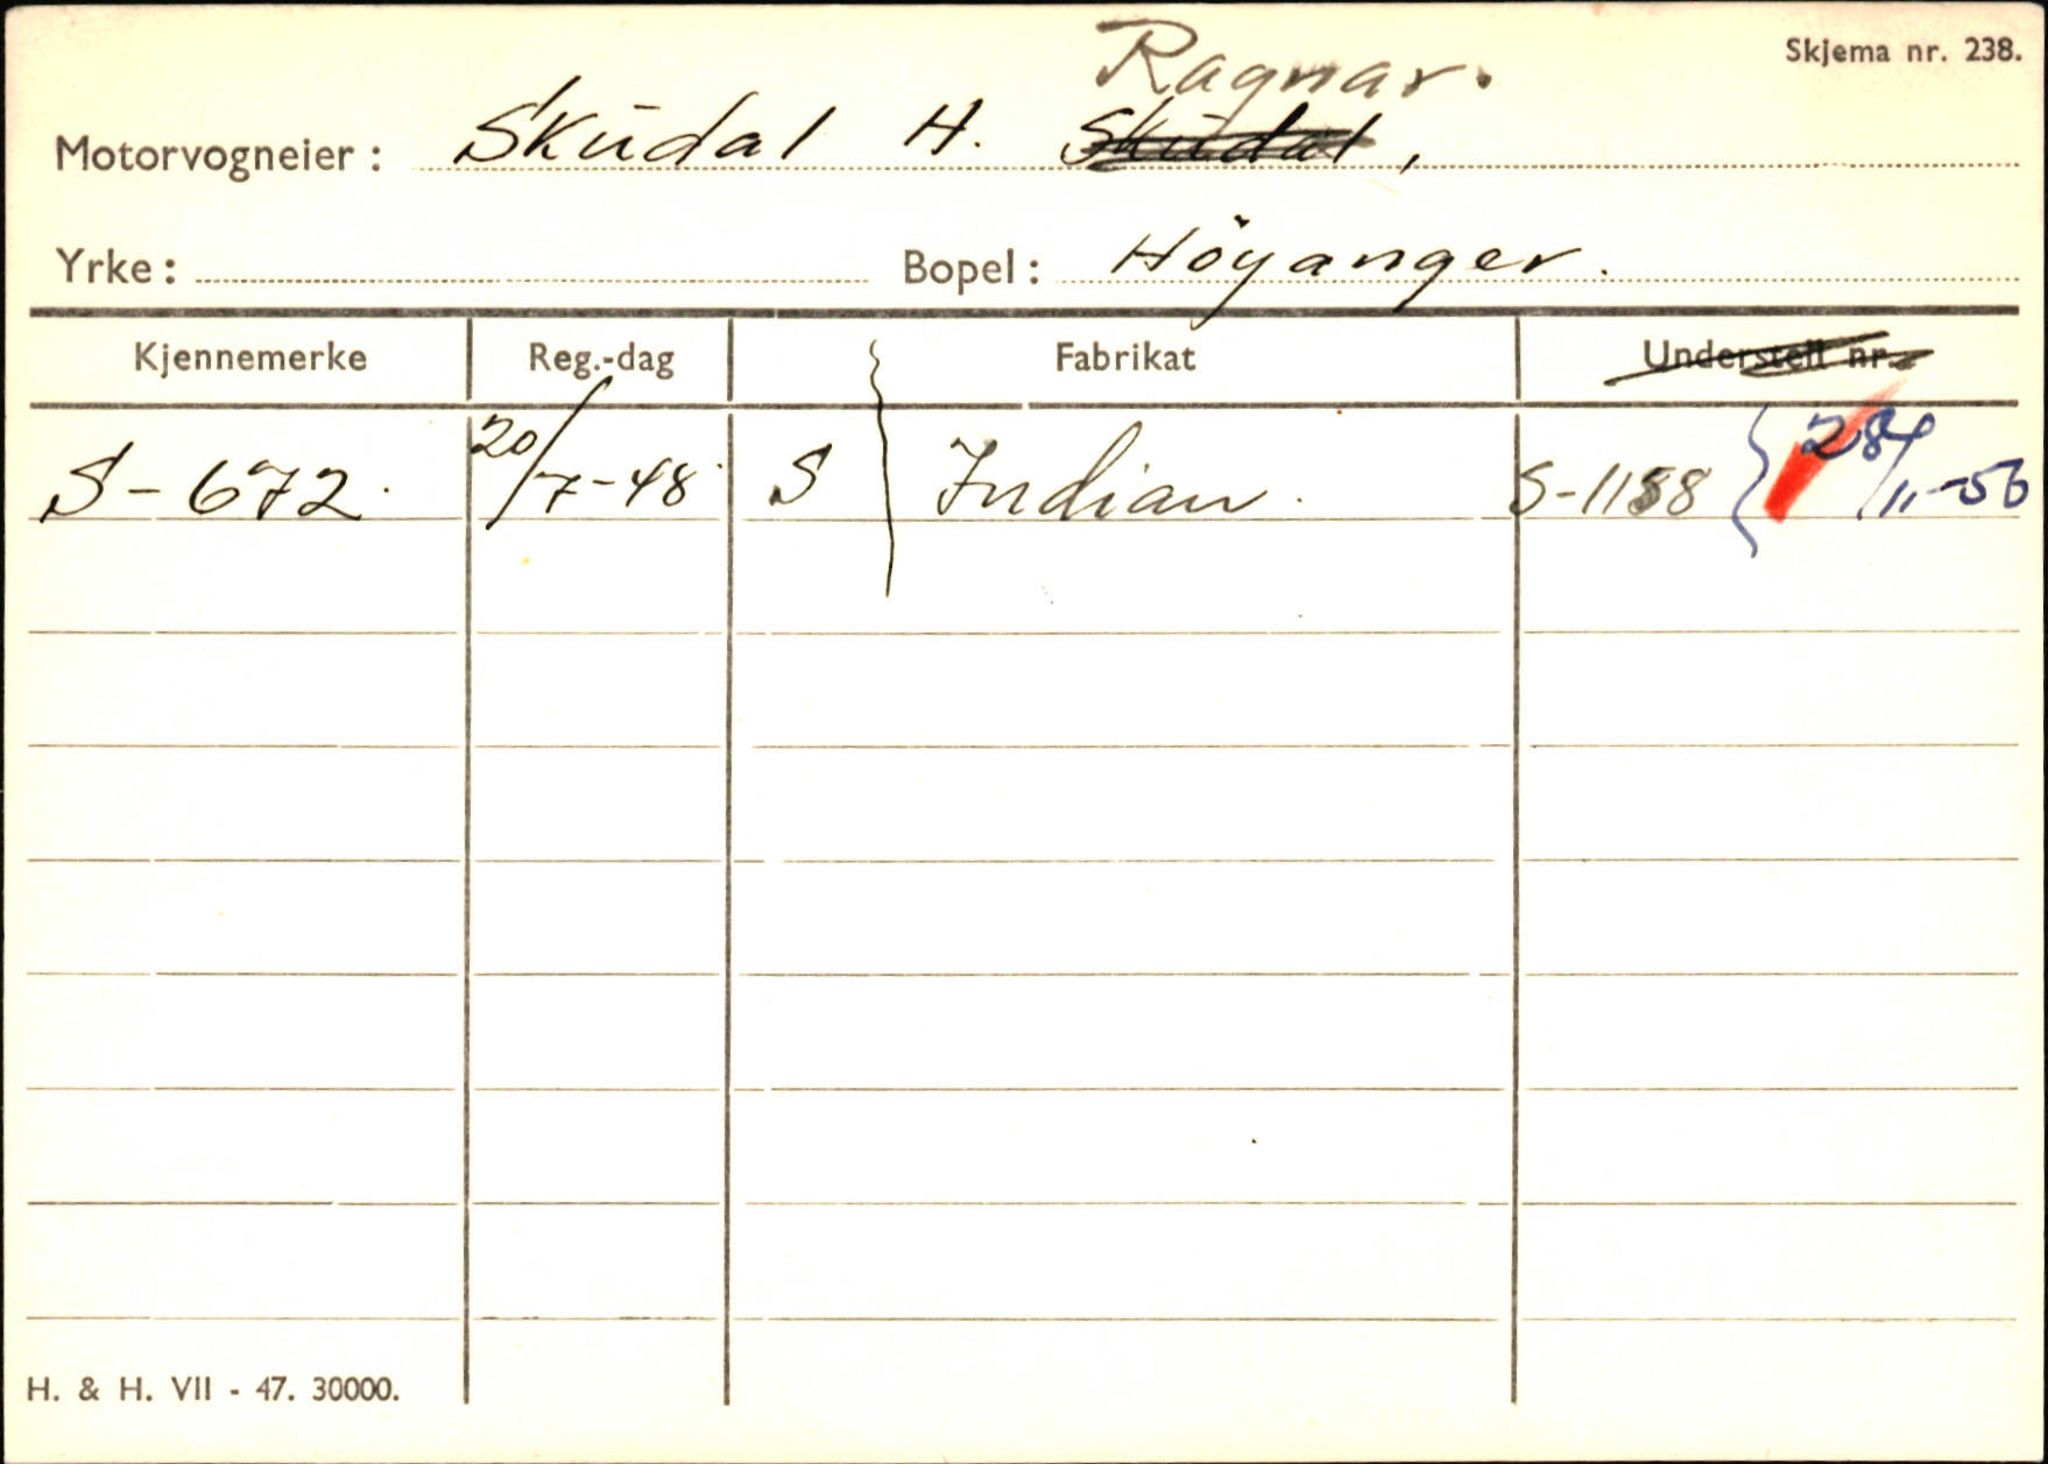 Skjema nr. 238.
Ragnar.
Motorvogneier: Skudal H. Skudal,
Yrke: Bopel: Höyanger.
Kjennemerke Reg.-dag Fabrikat Understell nr.
S-672. 20/7-48 S Indian. S-1158 28/11-56
H. & H. VII - 47. 30000.